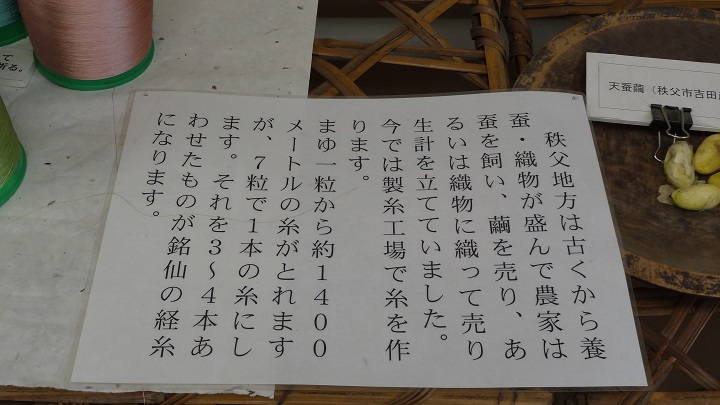 秩父地方は古くから養
蚕・織物が盛んで農家は
蚕を飼い、繭を売り、あ
るいは織物に織って売り
生計を立てていました。
今では製糸工場で糸を作
ります。
まゆ一粒から約1400
メートルの糸がとれます
が、7粒で1本の糸にし
ます。それを3〜4本あ
わせたものが銘仙の経糸
になります。
天蚕繭（秩父市吉田
て